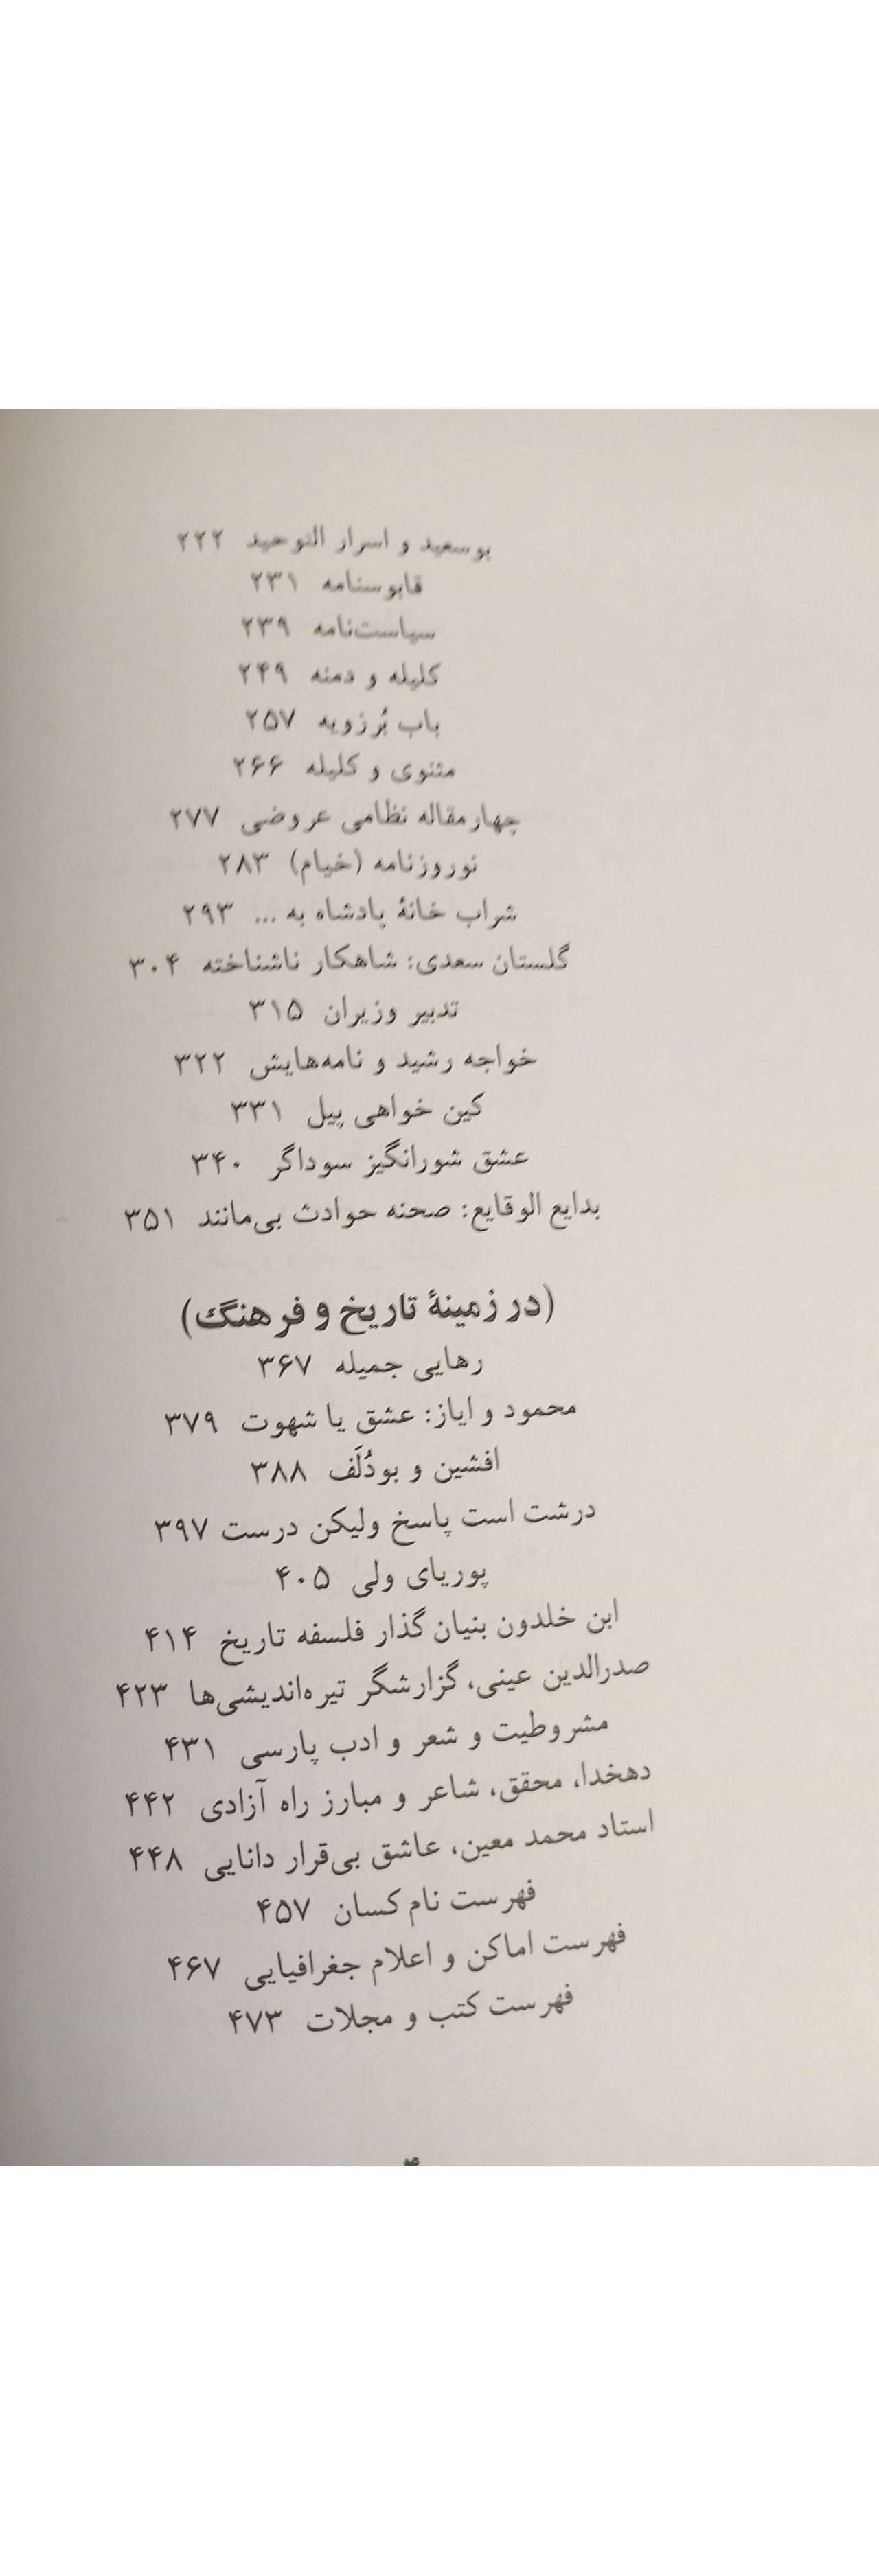 بوسعید و اسرار التوحید ۲۲۲
قابوسنامه ۲۳۱
سیاست‌نامه ۲۳۹
کلیله و دمنه ۲۴۹
باب بُرزویه ۲۵۷
مثنوی و کلیله ۲۶۶
چهارمقاله نظامی عروضی ۲۷۷
نوروزنامه (خیام) ۲۸۳
شراب خانهٔ پادشاه به ... ۲۹۳
گلستان سعدی: شاهکار ناشناخته ۳۰۴
تدبیر وزیران ۳۱۵
خواجه رشید و نامه‌هایش ۳۲۲
کین خواهی پیل ۳۳۱
عشق شورانگیز سوداگر ۳۴۰
بدایع الوقایع: صحنه حوادث بی‌مانند ۳۵۱
(در زمینهٔ تاریخ و فرهنگ)
رهایی جمیله ۳۶۷
محمود و ایاز: عشق یا شهوت ۳۷۹
افشین و بودُلَف ۳۸۸
درشت است پاسخ ولیکن درست ۳۹۷
پوریای ولی ۴۰۵
ابن خلدون بنیان گذار فلسفه تاریخ ۴۱۴
صدرالدین عینی، گزارشگر تیره‌اندیشی‌ها ۴۲۳
مشروطیت و شعر و ادب پارسی ۴۳۱
دهخدا، محقق، شاعر و مبارز راه آزادی ۴۴۲
استاد محمد معین، عاشق بی‌قرار دانایی ۴۴۸
فهرست نام کسان ۴۵۷
فهرست اماکن و اعلام جغرافیایی ۴۶۷
فهرست کتب و مجلات ۴۷۳